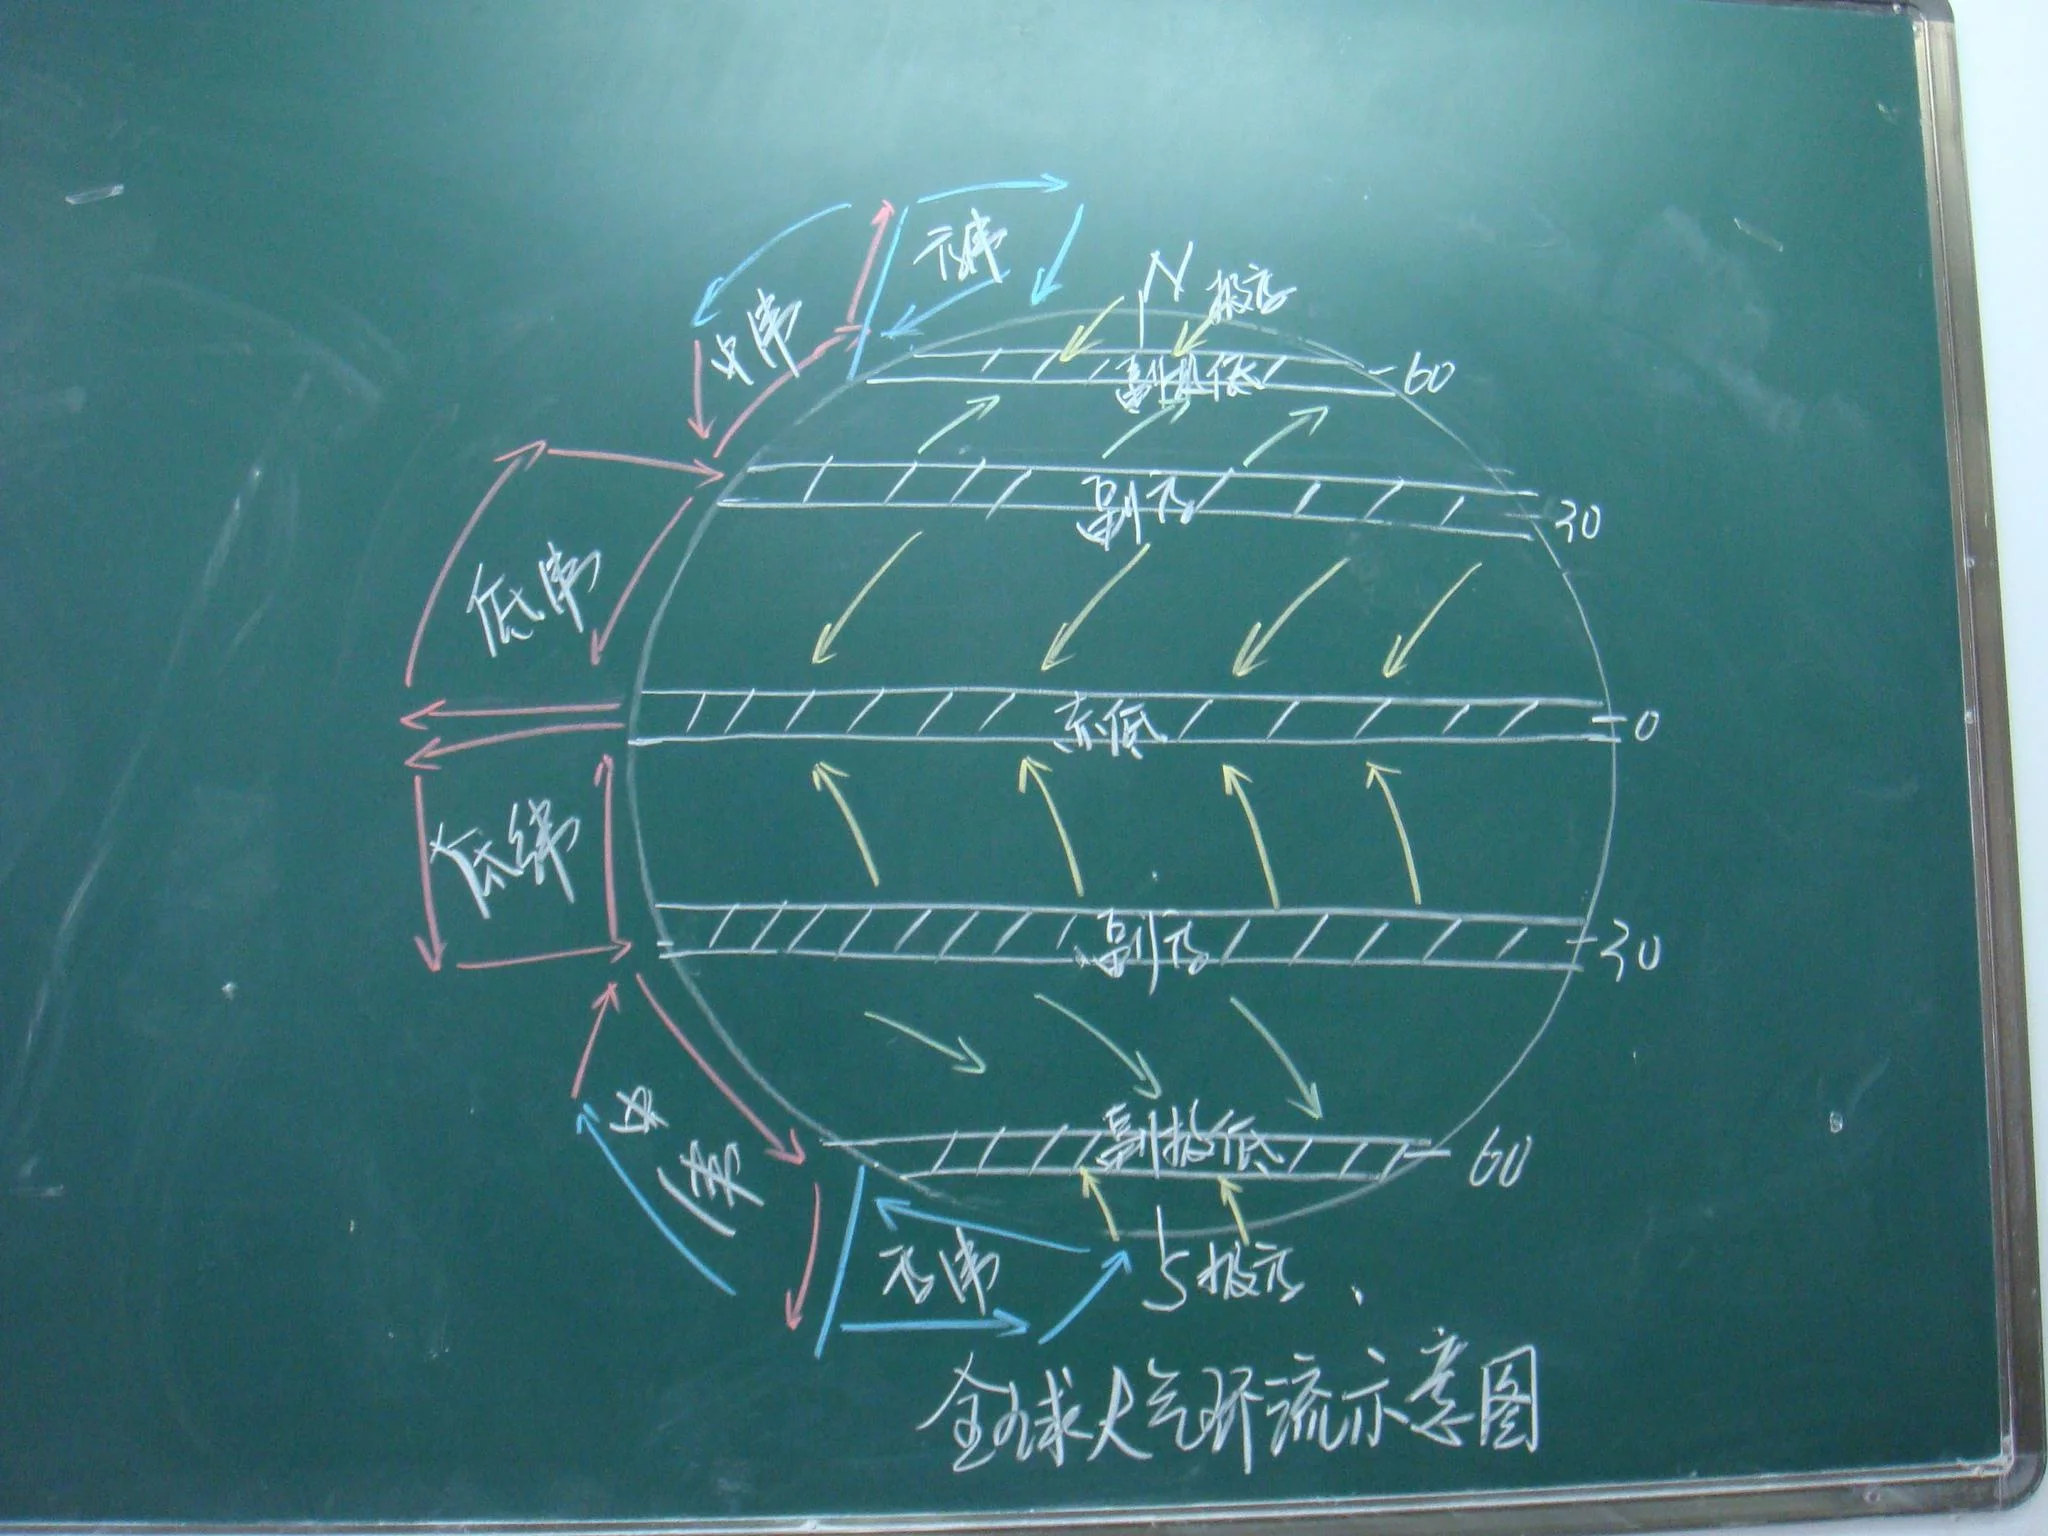 高纬
N 极高
中纬
副极低 60
副高 30
低纬
赤低 0
低纬
副高 30
中纬
副极低 60
高纬 S 极高
全球大气环流示意图